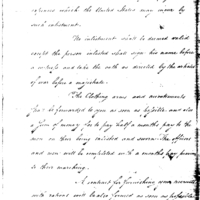 expence which the United States may incur by
such enlistment.
The enlistment shall be deemed valid
except the person enlisted shall sign his name before
a witness and take the oath as directed by the articles
of war before a magistrate.
The Clothing arms and accoutrements
for be forwarded to you as soon as possible and also
a sum of money for to pay half a months pay to the
men on their being enlisted and sworn. The officers
and men will be completed with a months pay
to their marching.
A contract for furnishing your recruits
with rations will be also formed as soon as possible